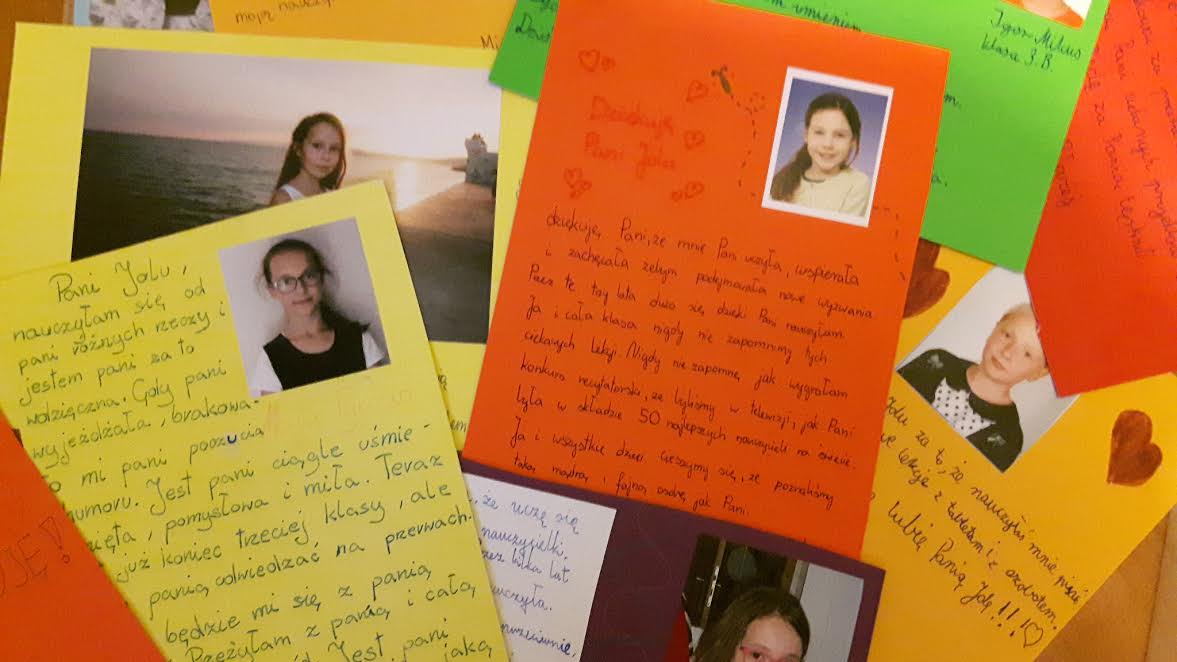 moją nauczyc
Mi
m umieniem
Igor Mikus
klasa 3.B.
Dziękuję
Pani Jolu
dziękuję Pani, że mnie Pani uczyła, wspierała
i zachęcała żebym podejmowała nowe wyzwania
Przez te trzy lata dużo się dzięki Pani nauczyłam
Ja i cała klasa nigdy nie zapomnimy tych
ciekawych lekcji. Nigdy nie zapomnę jak wygrałam
konkurs recytatorski, że byliśmy w telewizji, jak Pani
była w składzie 50 najlepszych nauczycieli na świecie.
Ja i wszystkie dzieci cieszymy się, że poznaliśmy
taką mądrą i fajną osobę jak Pani.
Pani Jolu,
nauczyłam się od
pani różnych rzeczy i
jestem pani za to
wdzięczna. Gdy pani
wyjeżdżała, brakowa-
ło mi pani poczucia
humoru. Jest pani ciągle uśmie-
nięta, pomysłowa i miła. Teraz
już koniec trzeciej klasy, ale
panią odwiedzać na przerwach.
będzie mi się z panią
Przeżyłam z panią i całą
Jest pani jaką
, że uczę się
nauczycielki,
przez kilka lat
uczyła.
Jolu za to, że nauczyłaś mnie pisać
lekcje z światem i z ozobotem.
lubię Panią Jolę!!!
UJĘ!